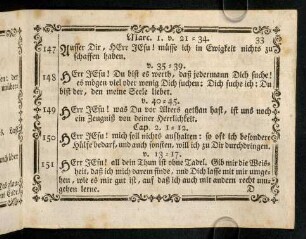 Marc. 1. v. 21-34. 33
147 Ausser Dir, HErr JEsu! müsse ich in Ewigkeit nichts zu
schaffen haben.
v. 35-39.
148 HErr JEsu! Du bist es werth, daß jedermann Dich suche!
es mögen viel oder wenig Dich suchen: Dich suche ich: Du
bist der, den meine Seele liebet.
v. 40-45.
149 HErr JEsu! was Du vor Alters gethan hast, ist uns noch
ein Zeugniß von deiner Herrlichkeit.
Cap. 2. 1-12.
150 HErr JEsu! mich soll nichts aufhalten: so oft ich besondere
Hülfe bedarf, und auch sonsten, will ich zu Dir durchdringen.
v. 13-17.
151 HErr JEsu! all dein Thun ist ohne Tadel. Gib mir die Weis-
heit, daß ich mich darein finde, und Dich lasse mit mir umge-
hen, wie es mir gut ist, auf daß ich auch mit andern recht um-
gehen lerne. D